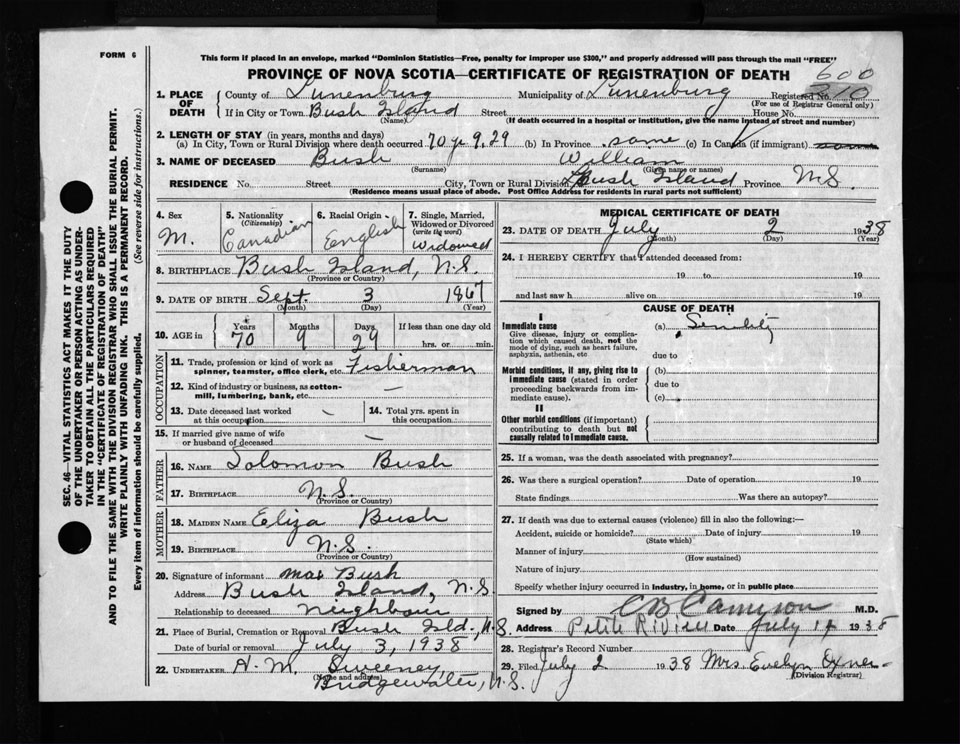 FORM 6
This form if placed in an envelope, marked "Dominion Statistics—Free, penalty for improper use $300," and properly addressed will pass through the mail "FREE"
PROVINCE OF NOVA SCOTIA—CERTIFICATE OF REGISTRATION OF DEATH
600
1. PLACE OF DEATH County of Lunenburg Municipality of Lunenburg Registered No. 810
(For use of Registrar General only)
If in City or Town Bush Island Street House No.
(Name) (If death occurred in a hospital or institution, give the name instead of street and number)
2. LENGTH OF STAY (in years, months and days)
(a) In City, Town or Rural Division where death occurred 70 yr 9, 29 (b) In Province same (c) In Canada (if immigrant)
3. NAME OF DECEASED Bush William
(Surname) (Given name or names)
RESIDENCE No. Street City, Town or Rural Division Bush Island Province N.S.
(Residence means usual place of abode. Post Office Address for residents in rural parts not sufficient)
SEC. 46—VITAL STATISTICS ACT MAKES IT THE DUTY
OF THE UNDERTAKER OR PERSON ACTING AS UNDER-
TAKER TO OBTAIN ALL THE PARTICULARS REQUIRED
IN THE "CERTIFICATE OF REGISTRATION OF DEATH"
AND TO FILE THE SAME WITH THE DIVISION REGISTRAR WHO SHALL ISSUE THE BURIAL PERMIT.
WRITE PLAINLY WITH UNFADING INK. THIS IS A PERMANENT RECORD.
Every item of information should be carefully supplied. (See reverse side for instructions.)
4. Sex M.
5. Nationality (Citizenship) Canadian
6. Racial Origin English
7. Single, Married, Widowed or Divorced (write the word) Widowed
8. BIRTHPLACE Bush Island, N.S.
(Province or Country)
9. DATE OF BIRTH Sept. 3 1867
(Month) (Day) (Year)
10. AGE in Years 70 Months 9 Days 29 If less than one day old hrs. or min.
OCCUPATION
11. Trade, profession or kind of work as spinner, teamster, office clerk, etc. Fisherman
12. Kind of industry or business, as cotton-mill, lumbering, bank, etc. —
13. Date deceased last worked at this occupation - 14. Total yrs. spent in this occupation
15. If married give name of wife or husband of deceased —
FATHER
16. NAME Solomon Bush
17. BIRTHPLACE N.S.
(Province or Country)
MOTHER
18. MAIDEN NAME Eliza Bush
19. BIRTHPLACE N.S.
(Province or Country)
20. Signature of informant Max Bush
Address Bush Island, N.S.
Relationship to deceased neighbour
21. Place of Burial, Cremation or Removal Bush Isld., N.S.
Date of burial or removal July 3, 1938
22. UNDERTAKER A. M. Sweeney,
(Name and address)
Bridgewater, N.S.
MEDICAL CERTIFICATE OF DEATH
23. DATE OF DEATH July 2 1938
(Month) (Day) (Year)
24. I HEREBY CERTIFY that I attended deceased from:
19 to 19
and last saw h alive on 19
CAUSE OF DEATH
I
Immediate cause (a) Senility
Give disease, injury or complication which caused death, not the mode of dying, such as heart failure, asphyxia, asthenia, etc
due to
Morbid conditions, if any, giving rise to immediate cause (stated in order proceeding backwards from immediate cause). (b)
due to
(c)
II
Other morbid conditions (if important) contributing to death but not causally related to immediate cause.
25. If a woman, was the death associated with pregnancy?
26. Was there a surgical operation? Date of operation 19
State findings Was there an autopsy?
27. If death was due to external causes (violence) fill in also the following:—
Accident, suicide or homicide? Date of injury 19
(State which)
Manner of injury
(How sustained)
Nature of injury
Specify whether injury occurred in industry, in home, or in public place
Signed by C B Cameron M.D.
Address Petite Riviere Date July 1938
28. Registrar's Record Number
29. Filed July 2 1938 Mrs. Evelyn Oxner
(Division Registrar)